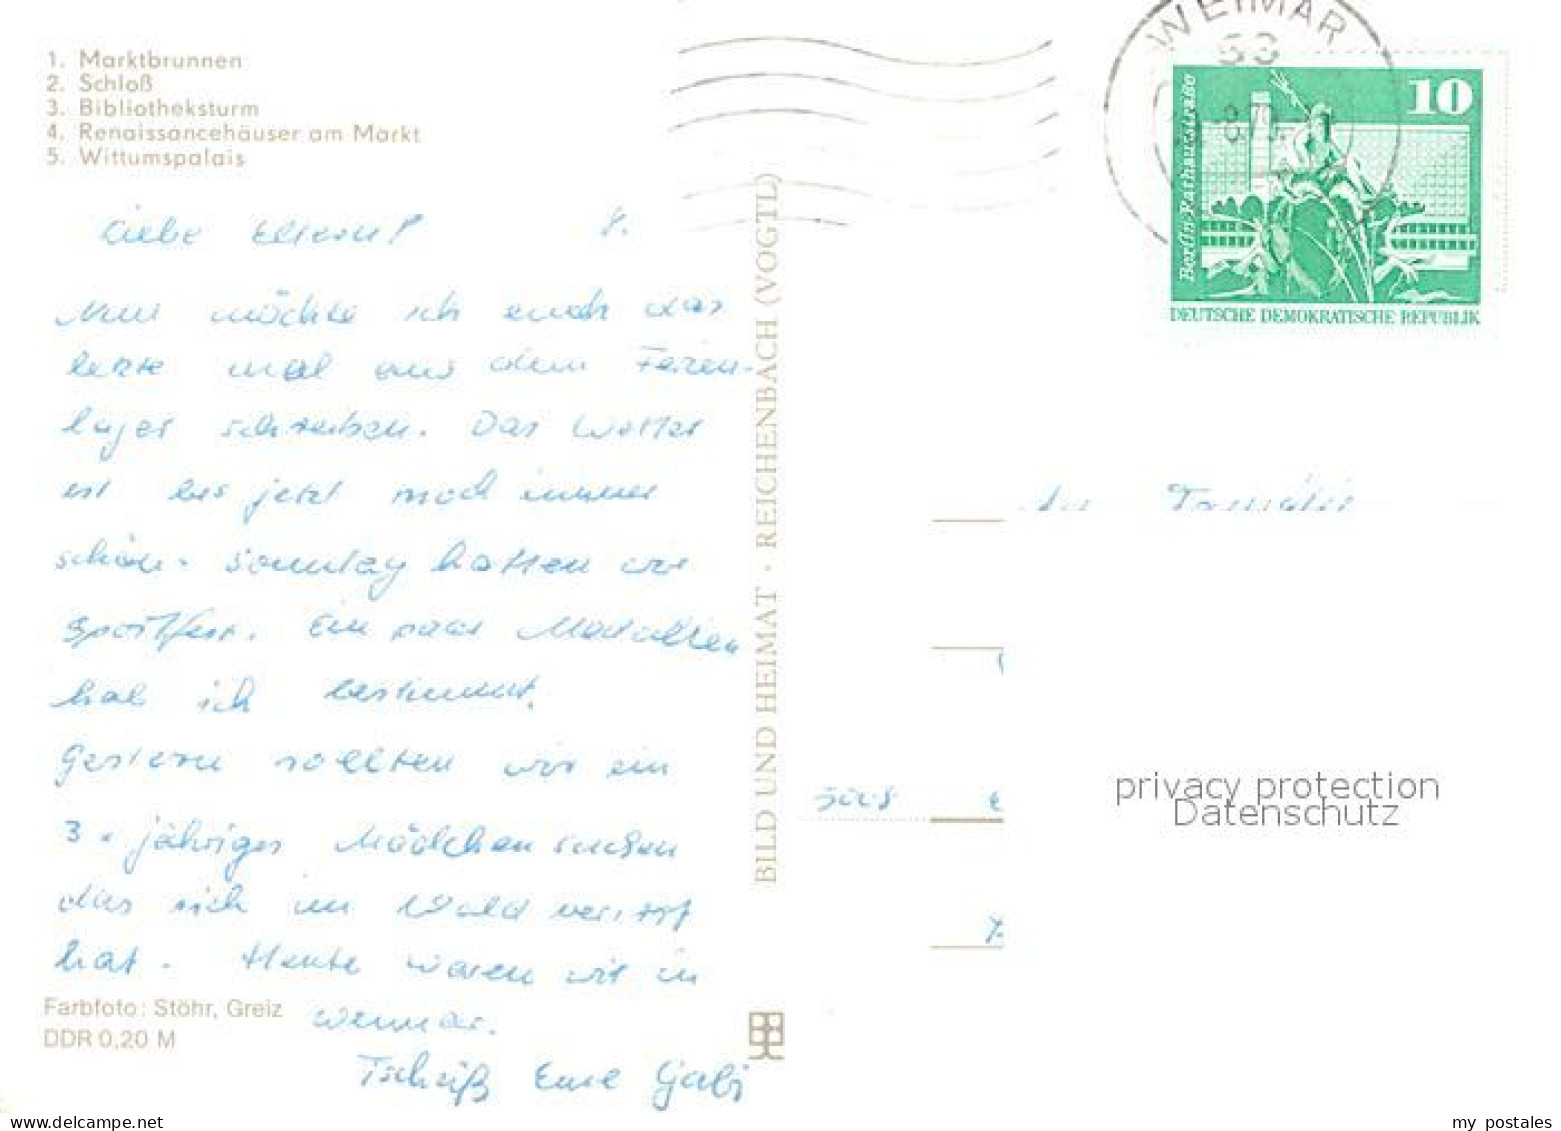 1. Marktbrunnen
2. Schloß
3. Bibliotheksturm
4. Renaissancehäuser am Markt
5. Wittumspalais
Liebe Eltern! 8.
Nun möchte ich euch das
letzte mal aus dem Ferien-
lager schreiben. Das Wetter
ist bis jetzt noch immer
schön. Sonntag hatten wir
Sportfest. Ein paar Medaillen
hab ich bestimmt.
Gestern sollten wir ein
3-jähriges Mädchen suchen
das sich im Wald verirrt
hat. Heute waren wir in
Weimar.
Tschüß Eure Gabi
Farbfoto: Stöhr, Greiz
DDR 0,20 M
BILD UND HEIMAT · REICHENBACH (VOGTL)
WEIMAR
53
10
Berlin-Rathausstraße
DEUTSCHE DEMOKRATISCHE REPUBLIK
Familie
privacy protection
Datenschutz
www.delcampe.net
my_postales